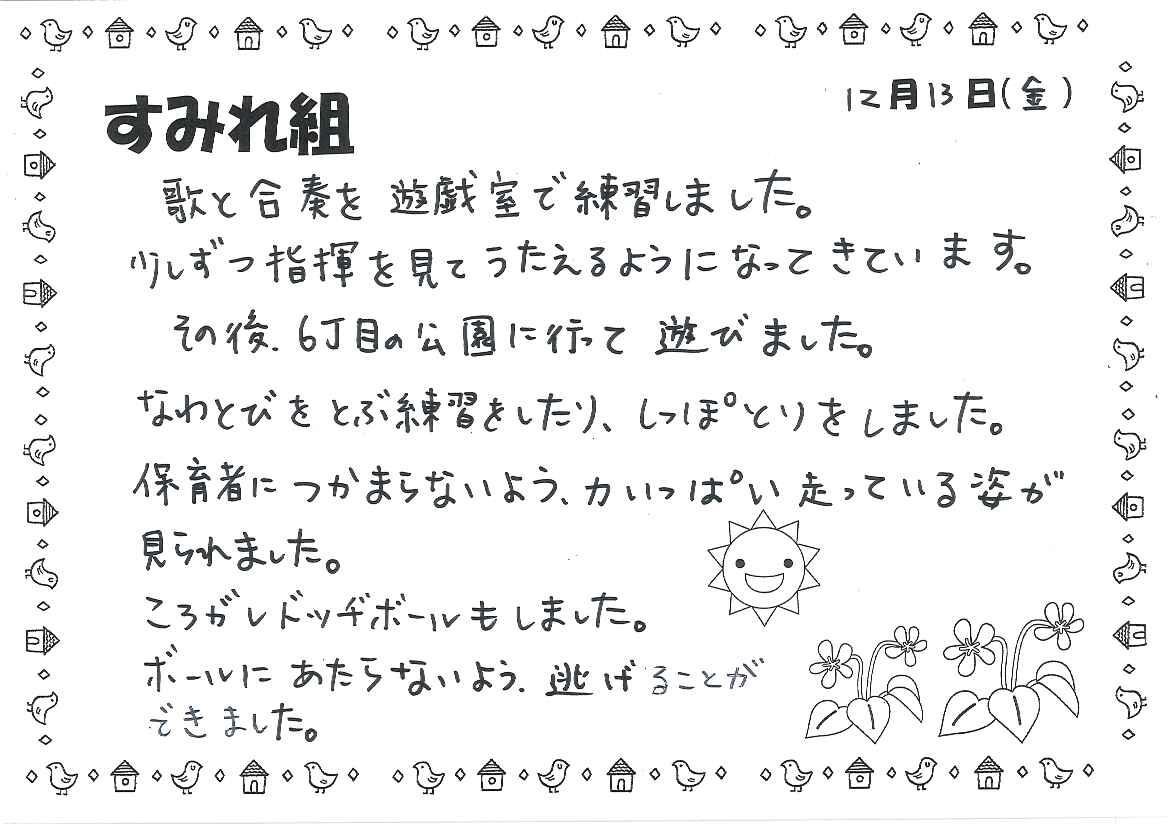 すみれ組
12月13日(金)
歌と合奏を遊戯室で練習しました。
少しずつ指揮を見てうたえるようになってきています。
その後、6丁目の公園に行って遊びました。
なわとびをとぶ練習をしたり、しっぽとりをしました。
保育者につかまらないよう、力いっぱい走っている姿が
見られました。
ころがしドッヂボールもしました。
ボールにあたらないよう、逃げることが
できました。